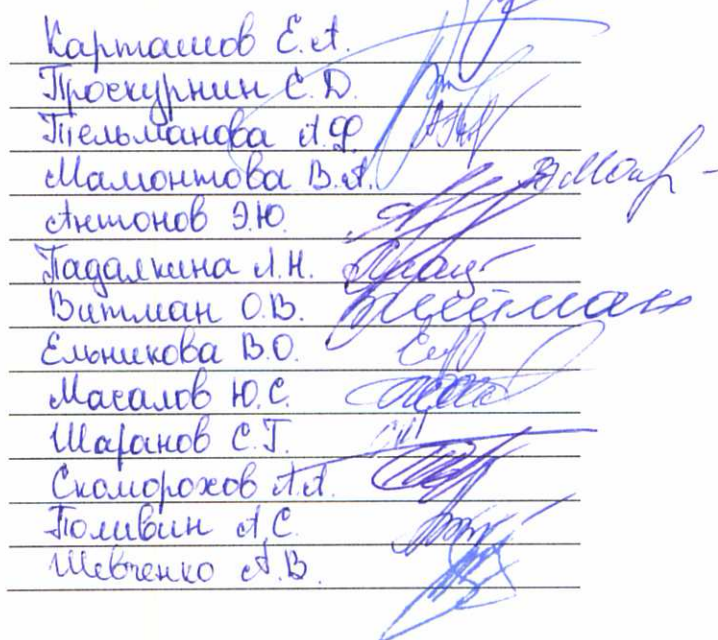 Карташов Е.А.
Проскурнин С.Д.
Тельманова А.Ф.
Мамонтова В.А.
Антонов Э.Ю.
Падалкина Л.Н.
Витман О.В. Витман
Ельникова В.О.
Масалов Ю.С.
Шаранов С.Г.
Скоморохов А.А.
Поливин А.С.
Шевченко А.В.